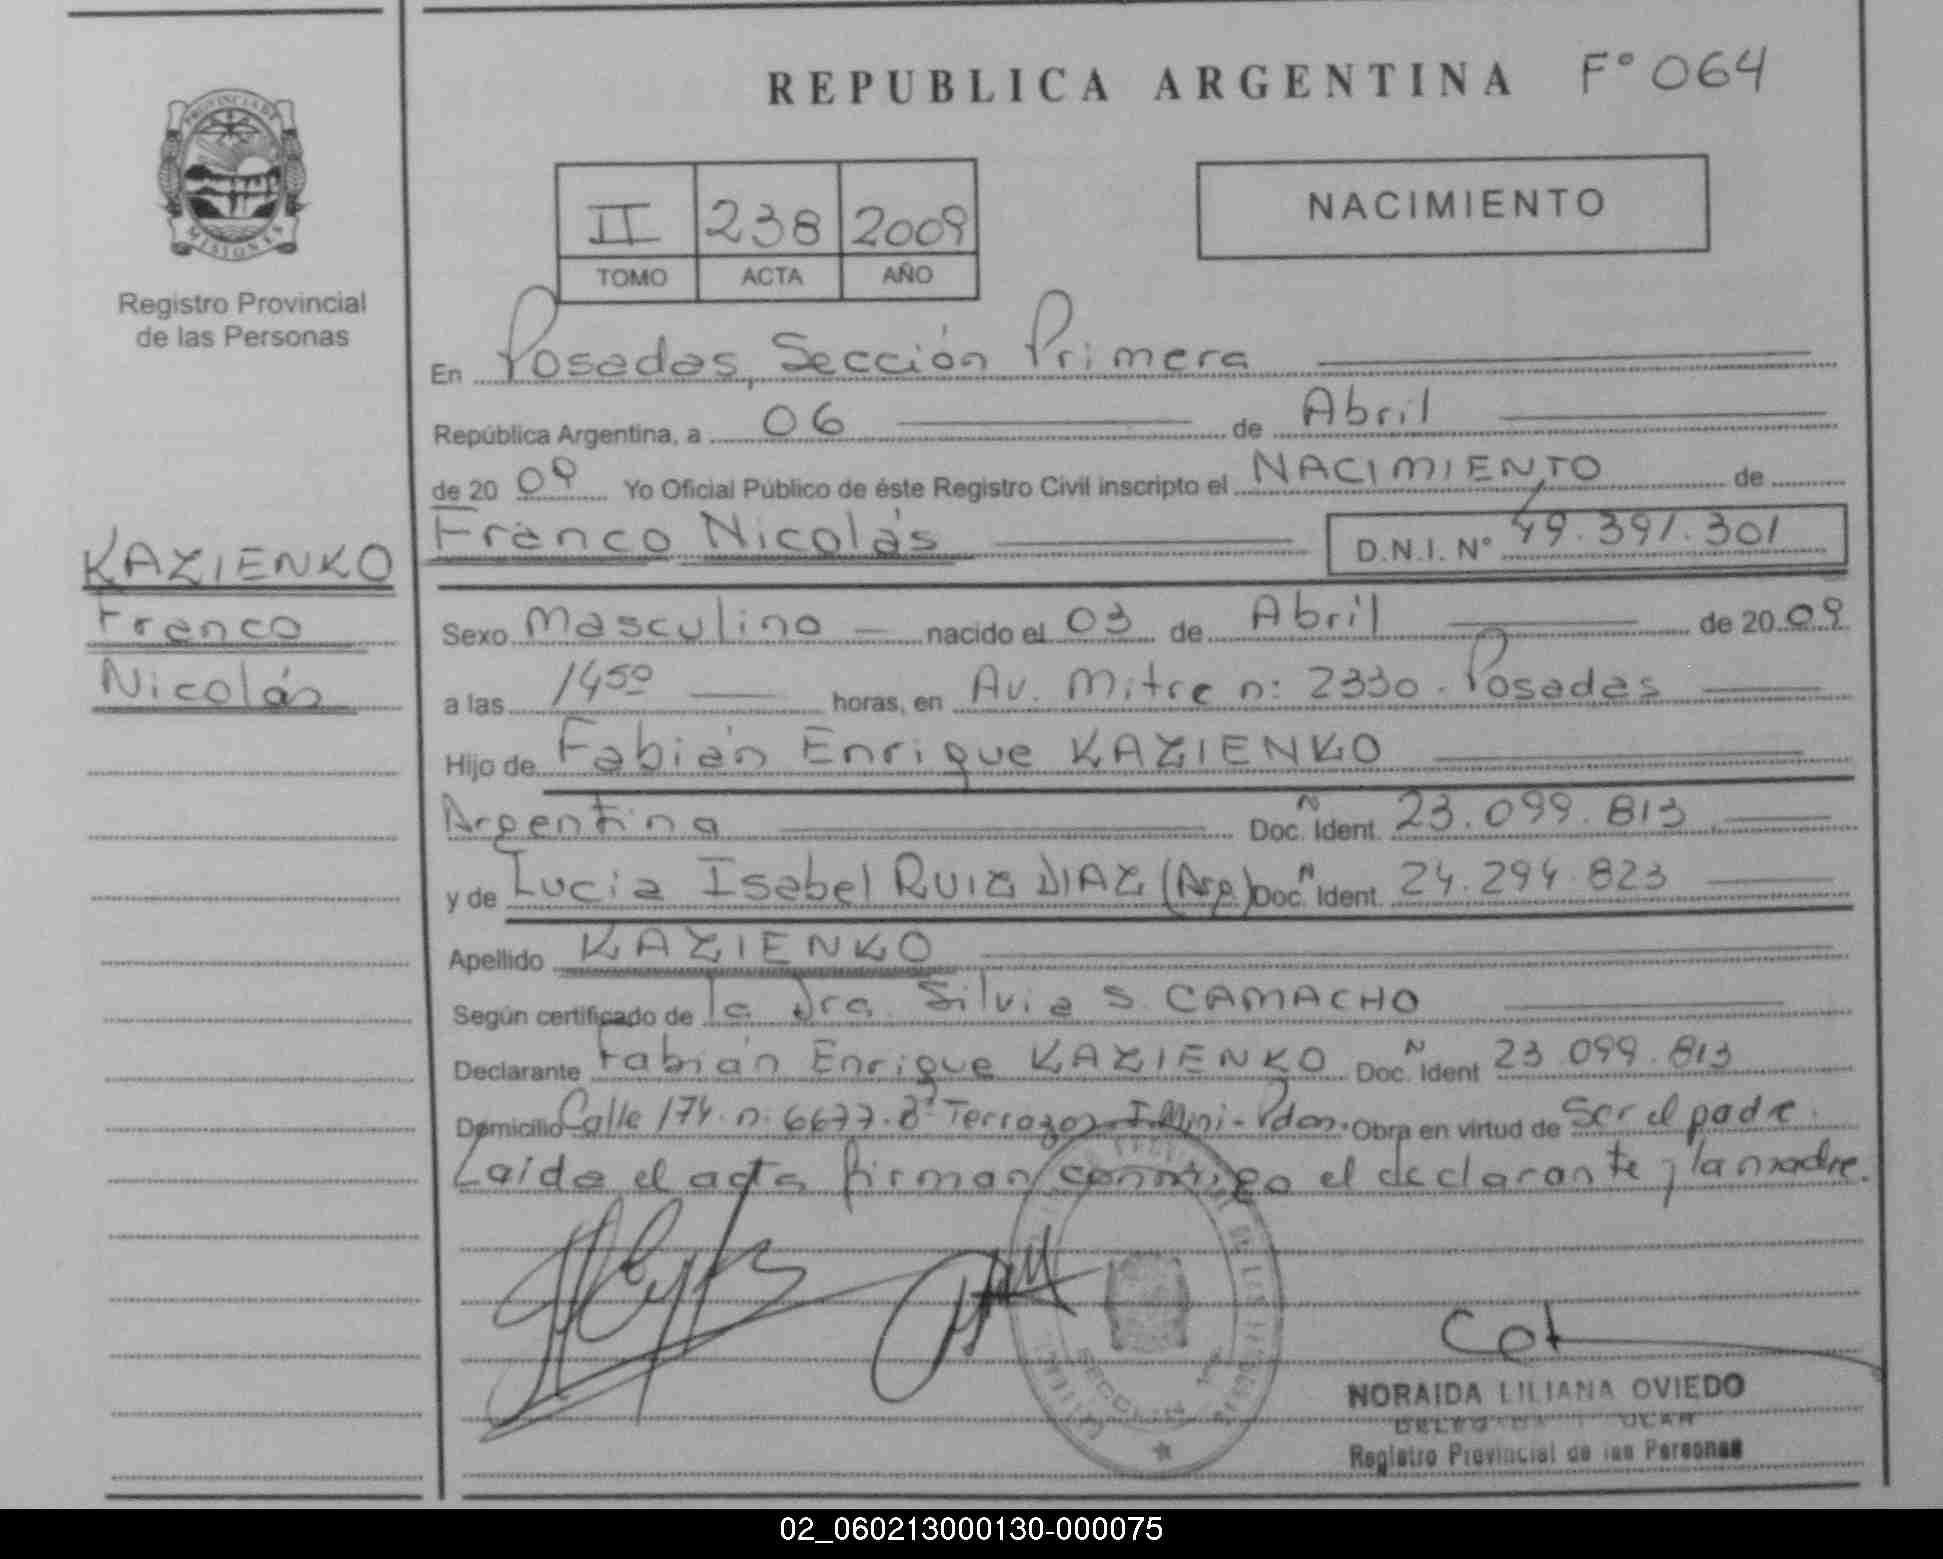 REPUBLICA ARGENTINA F° 064
PROVINCIA DE
MISIONES
Registro Provincial
de las Personas
II 238 2009
TOMO ACTA AÑO
NACIMIENTO
En Posadas, Sección Primera
República Argentina, a 06 de Abril
de 20 09 Yo Oficial Público de éste Registro Civil inscripto el NACIMIENTO de
Franco Nicolás D.N.I. N° 49.391.301
KAZIENKO
Franco
Nicolás
Sexo Masculino nacido el 03 de Abril de 20 09
a las 1450 horas, en Av. Mitre n: 2330. Posadas
Hijo de Fabián Enrique KAZIENKO
Argentina Doc. N Ident. 23.099.813
y de Lucia Isabel RUIZ DIAZ (Arg.) Doc. N Ident. 24.294.823
Apellido KAZIENKO
Según certificado de la Dra. Silvia S. CAMACHO
Declarante Fabián Enrique KAZIENKO Doc. N Ident 23.099.813
Domicilio Calle 174. n: 6677. Obra en virtud de Ser el padre.
Laida el acta firman conmigo el declarante y la madre.
SECCION
NORAIDA LILIANA OVIEDO
Registro Provincial de las Personas
02_060213000130-000075